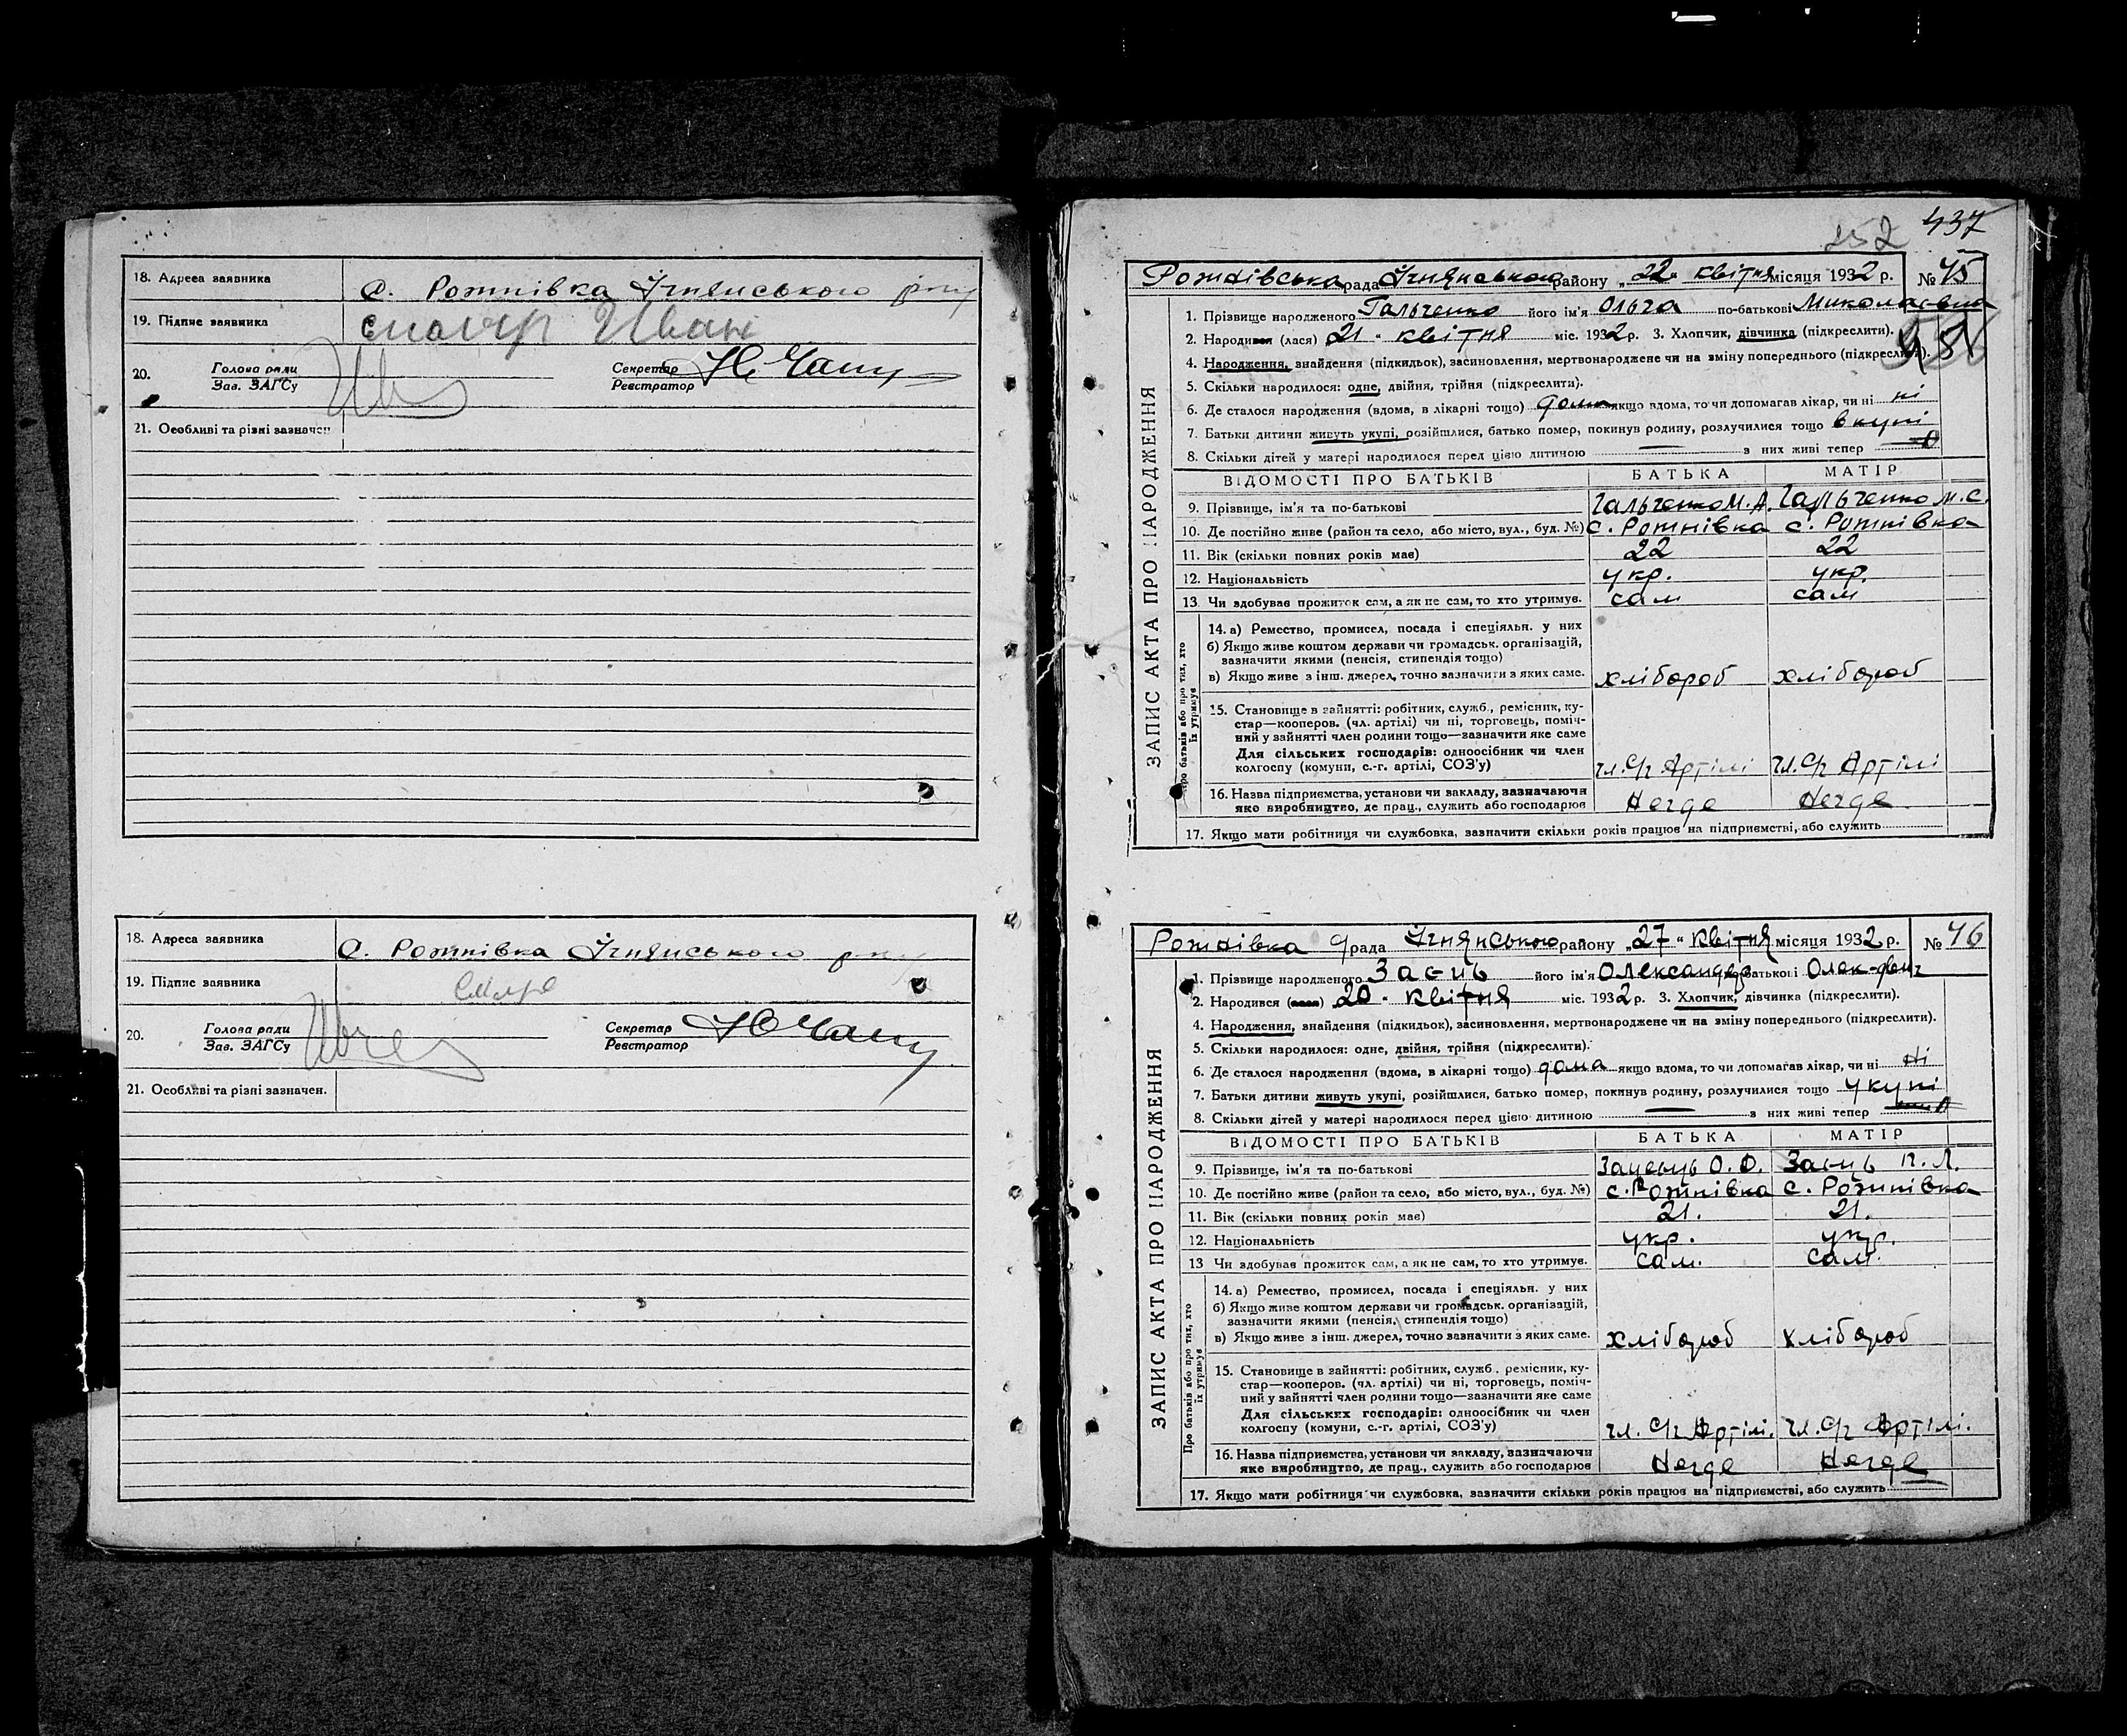 18. Адреса заявника С. Рожнівка Ічнянського р-ну
19. Підпис заявника Иван
20. Голова ради Секретар
Зав. ЗАГСу Реєстратор
21. Особливі та різні зазначен.
18. Адреса заявника С. Рожнівка Ічнянського р-ну
19. Підпис заявника
20. Голова ради Секретар
Зав. ЗАГСу Реєстратор
21. Особливі та різні зазначен.
437
252
Рожнівська рада Ічнянського району „22“ квітня місяця 1932 р. № 45
ЗАПИС АКТА ПРО НАРОДЖЕННЯ
1. Прізвище народженого Гальченко його ім'я Ольга по-батькові Миколаєвна
2. Народився (лася) 21 квітня міс. 1932 р. 3. Хлопчик, дівчинка (підкреслити).
4. Народження, знайдення (підкидьок), засиновлення, мертвонароджене чи на зміну попереднього (підкреслити).
5. Скільки народилося: одне, двійня, трійня (підкреслити).
6. Де сталося народження (вдома, в лікарні тощо) дома якщо вдома, то чи допомагав лікар, чи ні ні
7. Батьки дитини живуть укупі, розійшлися, батько помер, покинув родину, розлучилися тощо вкупі
8. Скільки дітей у матері народилося перед цією дитиною — з них живі тепер
ВІДОМОСТІ ПРО БАТЬКІВ БАТЬКА МАТІР
9. Прізвище, ім'я та по-батькові Гальченко М. А. Гальченко М. С.
10. Де постійно живе (район та село, або місто, вул., буд. №) с. Рожнівка с. Рожнівка
11. Вік (скільки повних років має) 22 22
12. Національність укр. укр.
13. Чи здобуває прожиток сам, а як не сам, то хто утримує. сам сам
Про батьків або про тих, хто їх утримує
14. а) Ремество, промисел, посада і спеціяльн. у них
б) Якщо живе коштом держави чи громадськ. організацій,
зазначити якими (пенсія, стипендія тощо)
в) Якщо живе з інш. джерел, точно зазначити з яких саме. хлібороб хлібороб
15. Становище в зайнятті: робітник, служб., ремісник, ку-
стар—кооперов. (чл. артілі) чи ні, торговець, поміч-
ний у зайнятті член родини тощо—зазначити яке саме
Для сільських господарів: одноосібник чи член
колгоспу (комуни, с.-г. артілі, СОЗ'у) чл. С/г Артілі чл. С/г Артілі
16. Назва підприємства, установи чи закладу, зазначаючи
яке виробництво, де прац., служить або господарює
17. Якщо мати робітниця чи службовка, зазначити скільки років працює на підприємстві, або служить
Рожнівка рада Ічнянського району „27“ квітня місяця 1932 р. № 46
ЗАПИС АКТА ПРО НАРОДЖЕННЯ
1. Прізвище народженого Заєць його ім'я Олександр по-батькові
2. Народився 20 квітня міс. 1932 р. 3. Хлопчик, дівчинка (підкреслити).
4. Народження, знайдення (підкидьок), засиновлення, мертвонароджене чи на зміну попереднього (підкреслити).
5. Скільки народилося: одне, двійня, трійня (підкреслити).
6. Де сталося народження (вдома, в лікарні тощо) дома якщо вдома, то чи допомагав лікар, чи ні ні
7. Батьки дитини живуть укупі, розійшлися, батько помер, покинув родину, розлучилися тощо укупі
8. Скільки дітей у матері народилося перед цією дитиною — з них живі тепер
ВІДОМОСТІ ПРО БАТЬКІВ БАТЬКА МАТІР
9. Прізвище, ім'я та по-батькові О. О. Заєць П. Л.
10. Де постійно живе (район та село, або місто, вул., буд. №) с. Рожнівка с. Рожнівка
11. Вік (скільки повних років має) 21. 21.
12. Національність укр. укр.
13 Чи здобуває прожиток сам, а як не сам, то хто утримує. сам. сам.
Про батьків або про тих, хто їх утримує
14. а) Ремество, промисел, посада і спеціяльн. у них
б) Якщо живе коштом держави чи громадськ. організацій,
зазначити якими (пенсія, стипендія тощо)
в) Якщо живе з інш. джерел, точно зазначити з яких саме. хлібороб хлібороб
15. Становище в зайнятті: робітник, служб., ремісник, ку-
стар—кооперов. (чл. артілі) чи ні, торговець, поміч-
ний у зайнятті член родини тощо—зазначити яке саме
Для сільських господарів: одноосібник чи член
колгоспу (комуни, с.-г. артілі, СОЗ'у) чл. С/г Артілі. чл. С/г Артілі.
16. Назва підприємства, установи чи закладу, зазначаючи
яке виробництво, де прац., служить або господарює
17. Якщо мати робітниця чи службовка, зазначити скільки років працює на підприємстві, або служить